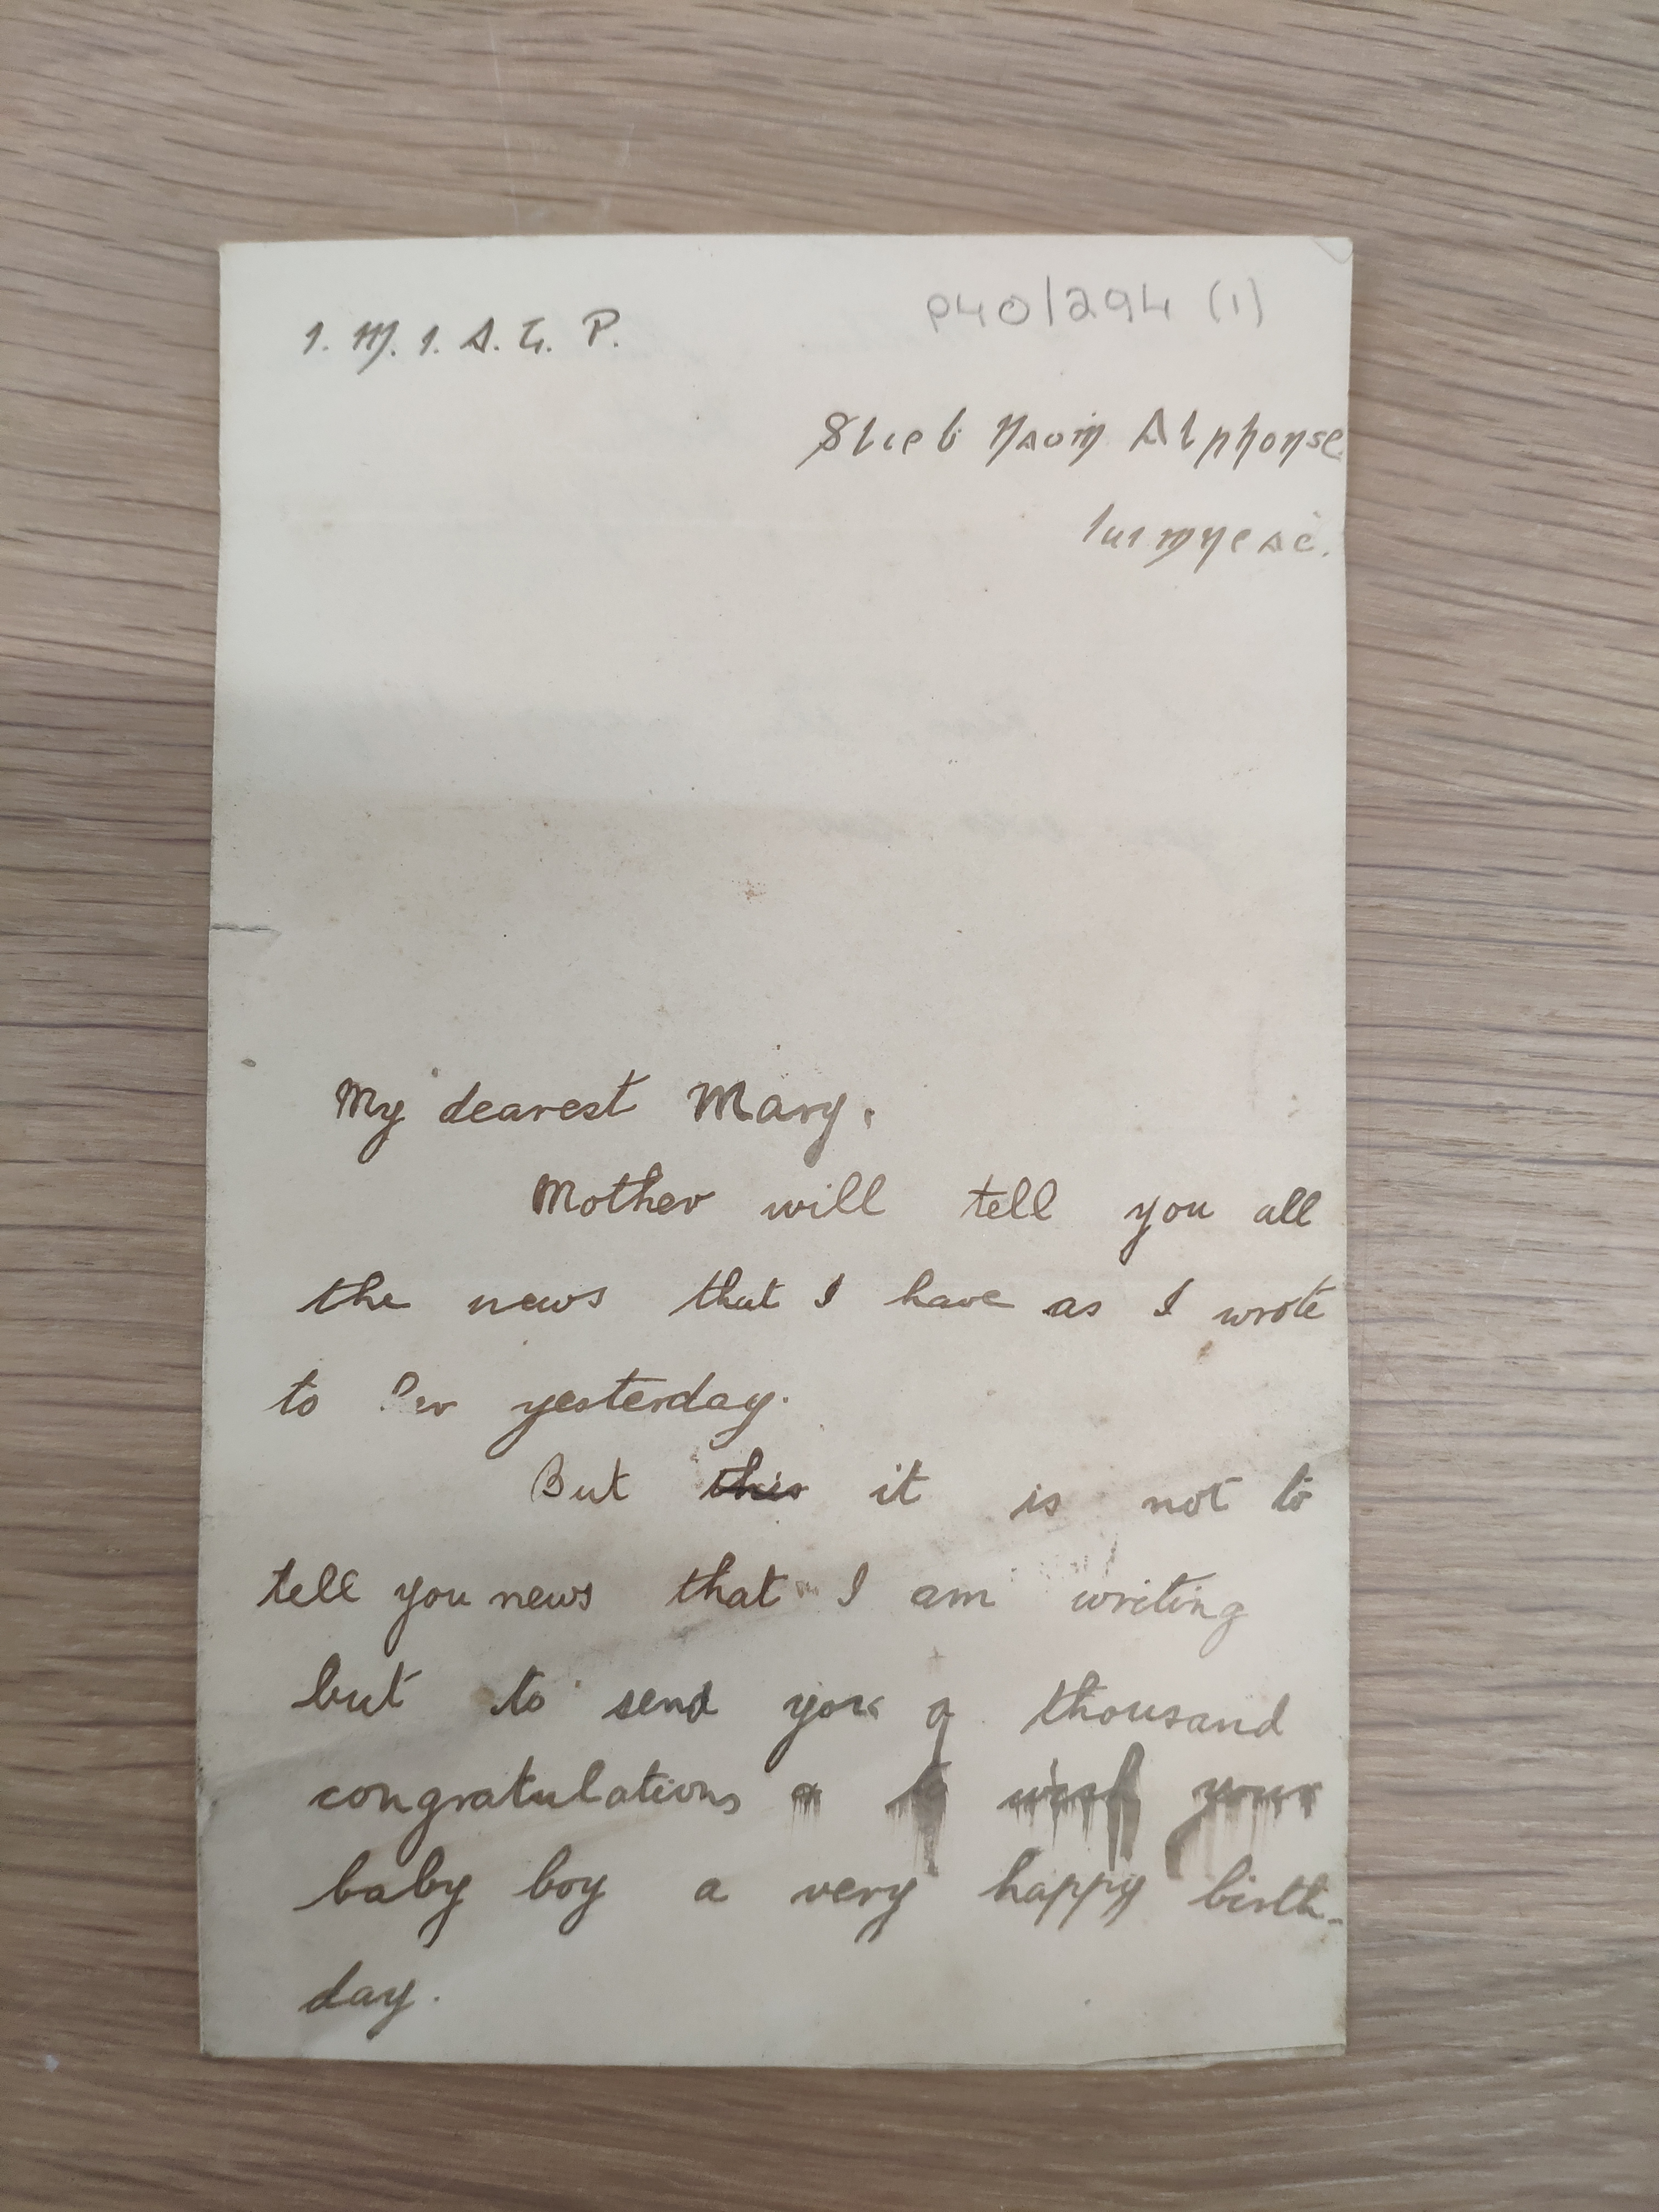 I. M. I. A. T. P.
P40/294 (1)
Slieḃ Naoiṁ Alphonse
Luimneaċ.
My dearest Mary,
Mother will tell you all
the news that I have as I wrote
to her yesterday.
But this it is not to
tell you news that I am writing
but to send you a thousand
congratulations & to wish your
baby boy a very happy birth-
day.